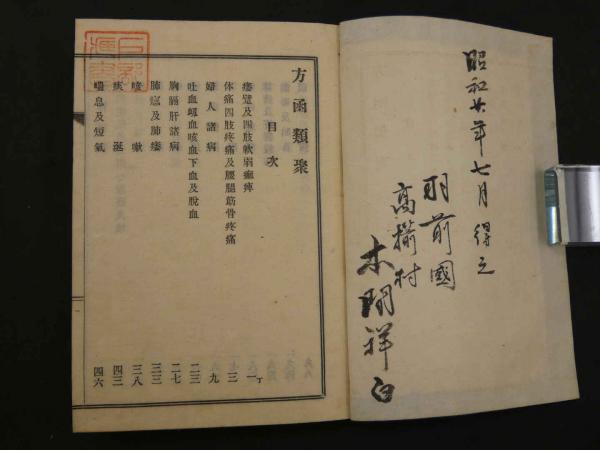 昭和廿年七月得之
羽前國
高擶村
本間祥白
方函類聚
目次
痿躄及四肢軟弱痲痺 一丁
体痛四肢疼痛及腰腿筋骨疼痛 三
婦人諸病 九
吐血衄血咳血下血及脫血 二三
胸膈肝諸病 二七
肺癰及肺痿 三三
咳嗽 三八
痰涎 四三
喘息及短氣 四六